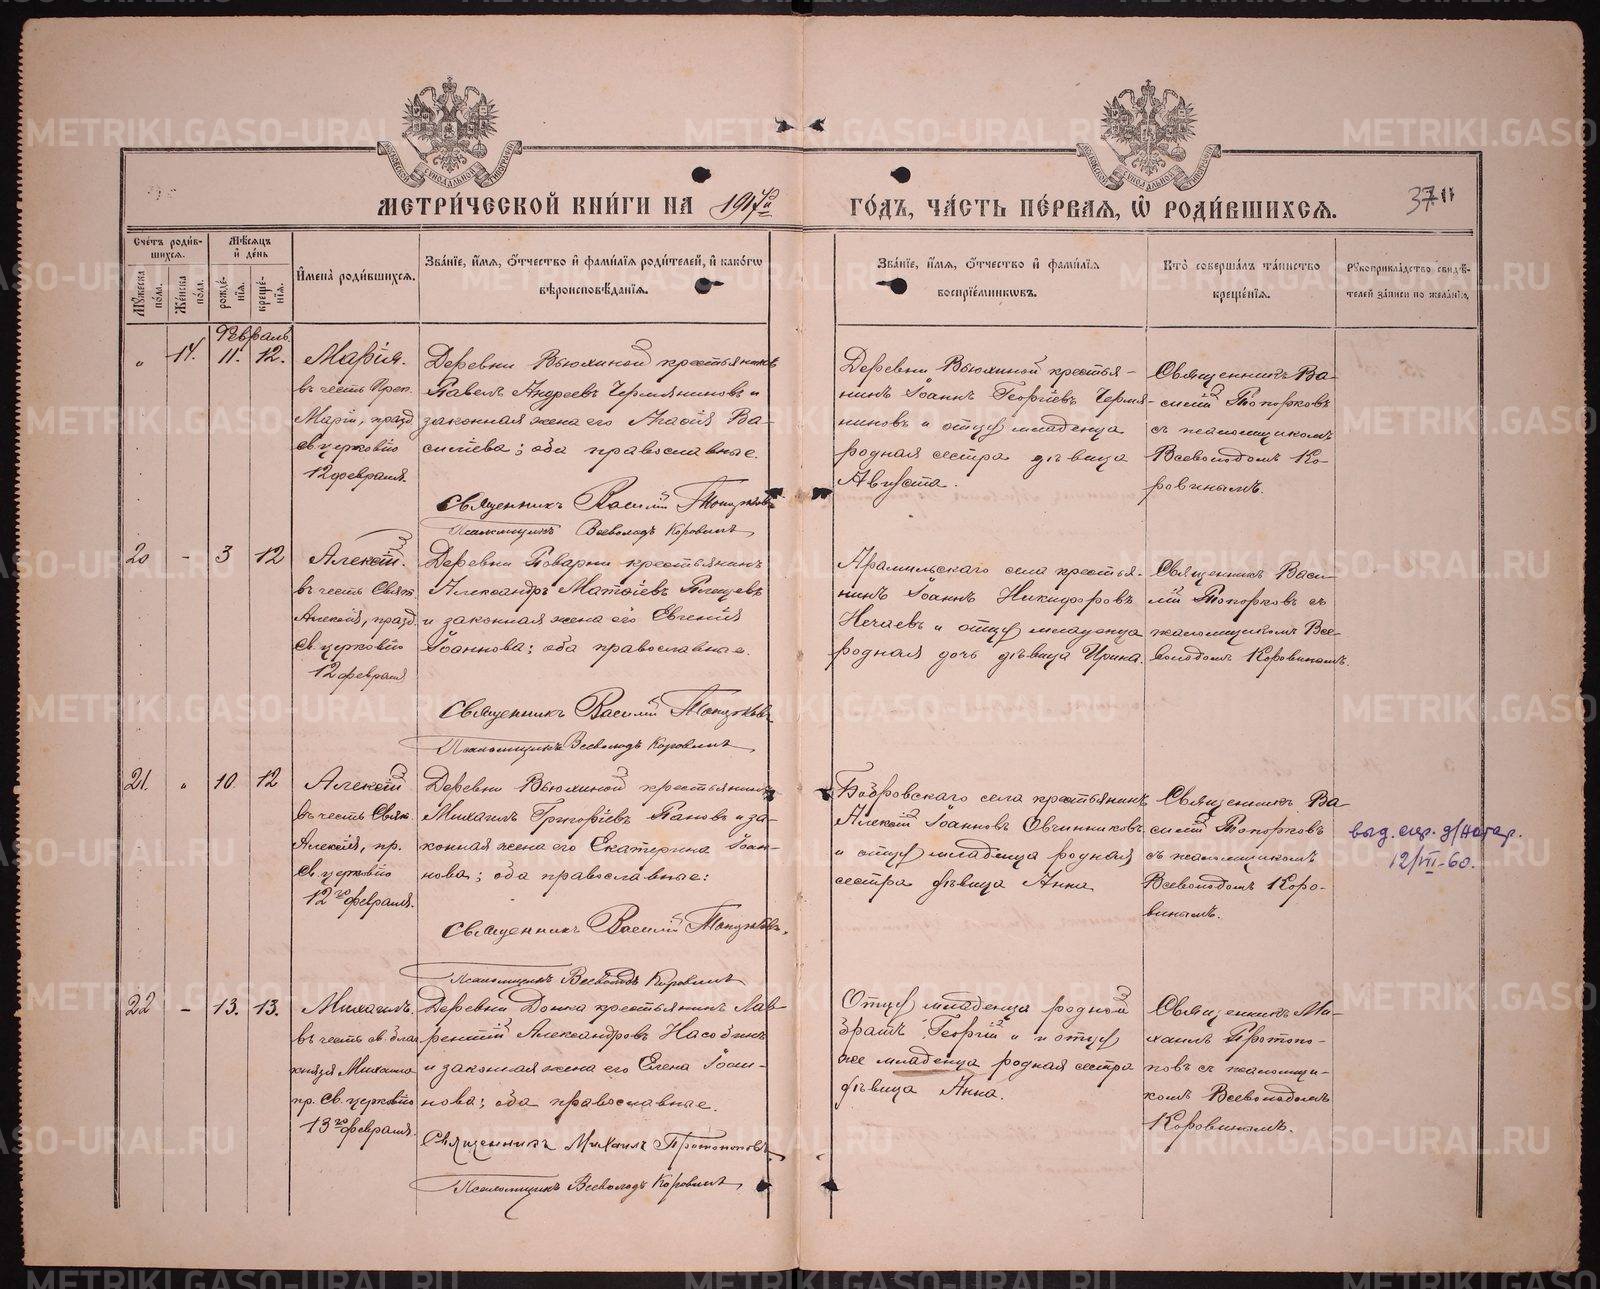 МЕТРИ́ЧЕСКОЙ КНИ́ГИ НА 1917й
ГО́ДЪ, ЧА́СТЬ ПЕ́РВАЯ, Ѽ РОДИ́ВШИХСЯ.
37
Сче́тъ роди́в-
шихся.
Мꙋ́жеска по́ла.
Же́нска по́ла.
Мѣ́сяцъ и де́нь
рожде́-
нія.
креще́-
нія.
И́мена роди́вшихся.
Зва́ніе, и́мя, о́тчество и фами́лія роди́телей, и како́гѡ
вѣроисповѣ́данія.
Зва́ніе, и́мя, о́тчество и фами́лія
воспріе́мникѡвъ.
Кто̀ соверша́лъ та́инство
креще́нія.
Рꙋкоприкла́дство свидѣ́-
телей за́писи по жела́нію.
Февраль
" 14. 11. 12.
Марія.
въ честь Преп.
Маріи, празд.
св. церковію
12 февраля.
Деревни Вьюхиной крестьянинъ
Павелъ Андреевъ Чермяниновъ и
законная жена его Агафія Ва-
сильева; оба православные.
Священникъ Василій Топорковъ
Псаломщикъ Всеволодъ Коровинъ
Деревни Вьюхиной крестья-
нинъ Іоаннъ Георгіевъ Чермя-
ниновъ и отцу младенца
родная сестра дѣвица
Августа.
Священникъ Ва-
силій Топорковъ
съ псаломщикомъ
Всеволодомъ Ко-
ровинымъ.
20 - 3 12
Алексій.
въ честь Свят.
Алексія, празд.
св. церковію
12 февраля
Деревни Поварни крестьянинъ
Александръ Матѳіевъ Плещевъ
и законная жена его Евгенія
Іоаннова; оба православные.
Священникъ Василій Топорковъ
Псаломщикъ Всеволодъ Коровинъ
Арамильскаго села крестья-
нинъ Іоаннъ Никифоровъ
Нечаевъ и отцу младенца
родная дочь дѣвица Ирина.
Священникъ Васи-
лій Топорковъ съ
псаломщикомъ Все-
володомъ Коровинымъ.
21. " 10 12
Алексій
въ честь Свят.
Алексія, пр.
св. церковію
12го февраля.
Деревни Вьюхиной крестьянинъ
Михаилъ Григоріевъ Пановъ и за-
конная жена его Екатерина Іоан-
нова; оба православные:
Священникъ Василій Топорковъ.
Псаломщикъ Всеволодъ Коровинъ
Бобровскаго села крестьянинъ
Алексій Іоанновъ Овчинниковъ
и отцу младенца родная
сестра дѣвица Анна
Священникъ Ва-
силій Топорковъ
съ псаломщикомъ
Всеволодомъ Коро-
винымъ.
выд. спр. д/нотар.
12/VII-60.
22 - 13. 13.
Михаилъ.
въ честь св. благ.
князя Михаила
пр. св. церковію
13го февраля.
Деревни Донка крестьянинъ Лав-
рентій Александровъ Насобинъ
и законная жена его Елена Іоан-
нова; оба православные.
Священникъ Михаилъ Протопоповъ
Псаломщикъ Всеволодъ Коровинъ
Отцу младенца родной
братъ Георгій и отцу
же младенца родная сестра
дѣвица Анна.
Священникъ Ми-
хаилъ Протопо-
повъ съ псаломщи-
комъ Всеволодомъ
Коровинымъ.
METRIKI.GASO-URAL.RU